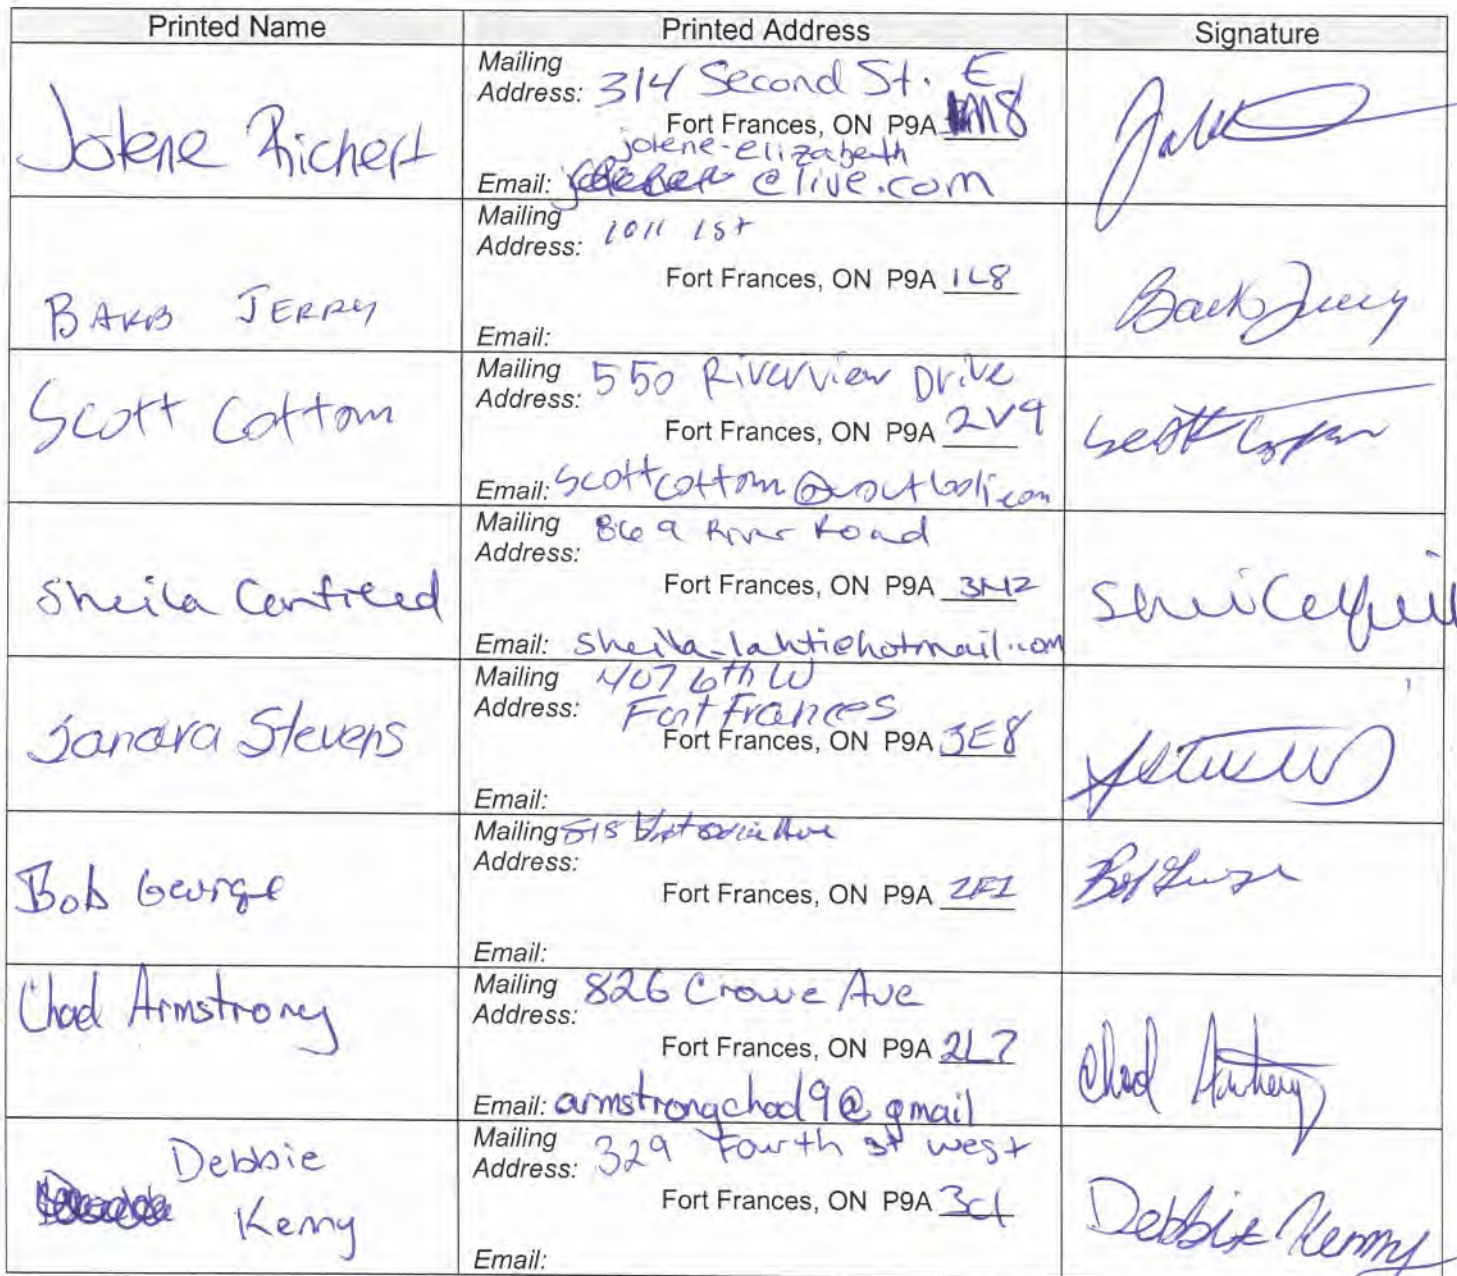 Printed Name Printed Address Signature
Jolene Richert
Mailing
Address: 314 Second St. E
Fort Frances, ON P9A 1M8
jolene-elizabeth
Email: @live.com
BARB JERRY
Mailing
Address: 1011 1st
Fort Frances, ON P9A 1L8
Email:
Barb Jerry
Scott Cottom
Mailing 550 Riverview Drive
Address:
Fort Frances, ON P9A 2V9
Email: scottcottom@outlook.com
Scott
Sheila Canfield
Mailing 869 River Road
Address:
Fort Frances, ON P9A
Email: sheila-lahti@hotmail.com
Stevens
Mailing 407 6th W
Address: Fort Frances
Fort Frances, ON P9A 3E8
Email:
Bob George
Mailing
Address:
Fort Frances, ON P9A
Email:
Bob George
Chad Armstrong
Mailing 826 Crowe Ave
Address:
Fort Frances, ON P9A 2L7
Email: armstrongchad9@gmail
Chad
Debbie
Kenny
Mailing
Address: 329 Fourth st west
Fort Frances, ON P9A 3C1
Email:
Debbie Kenny